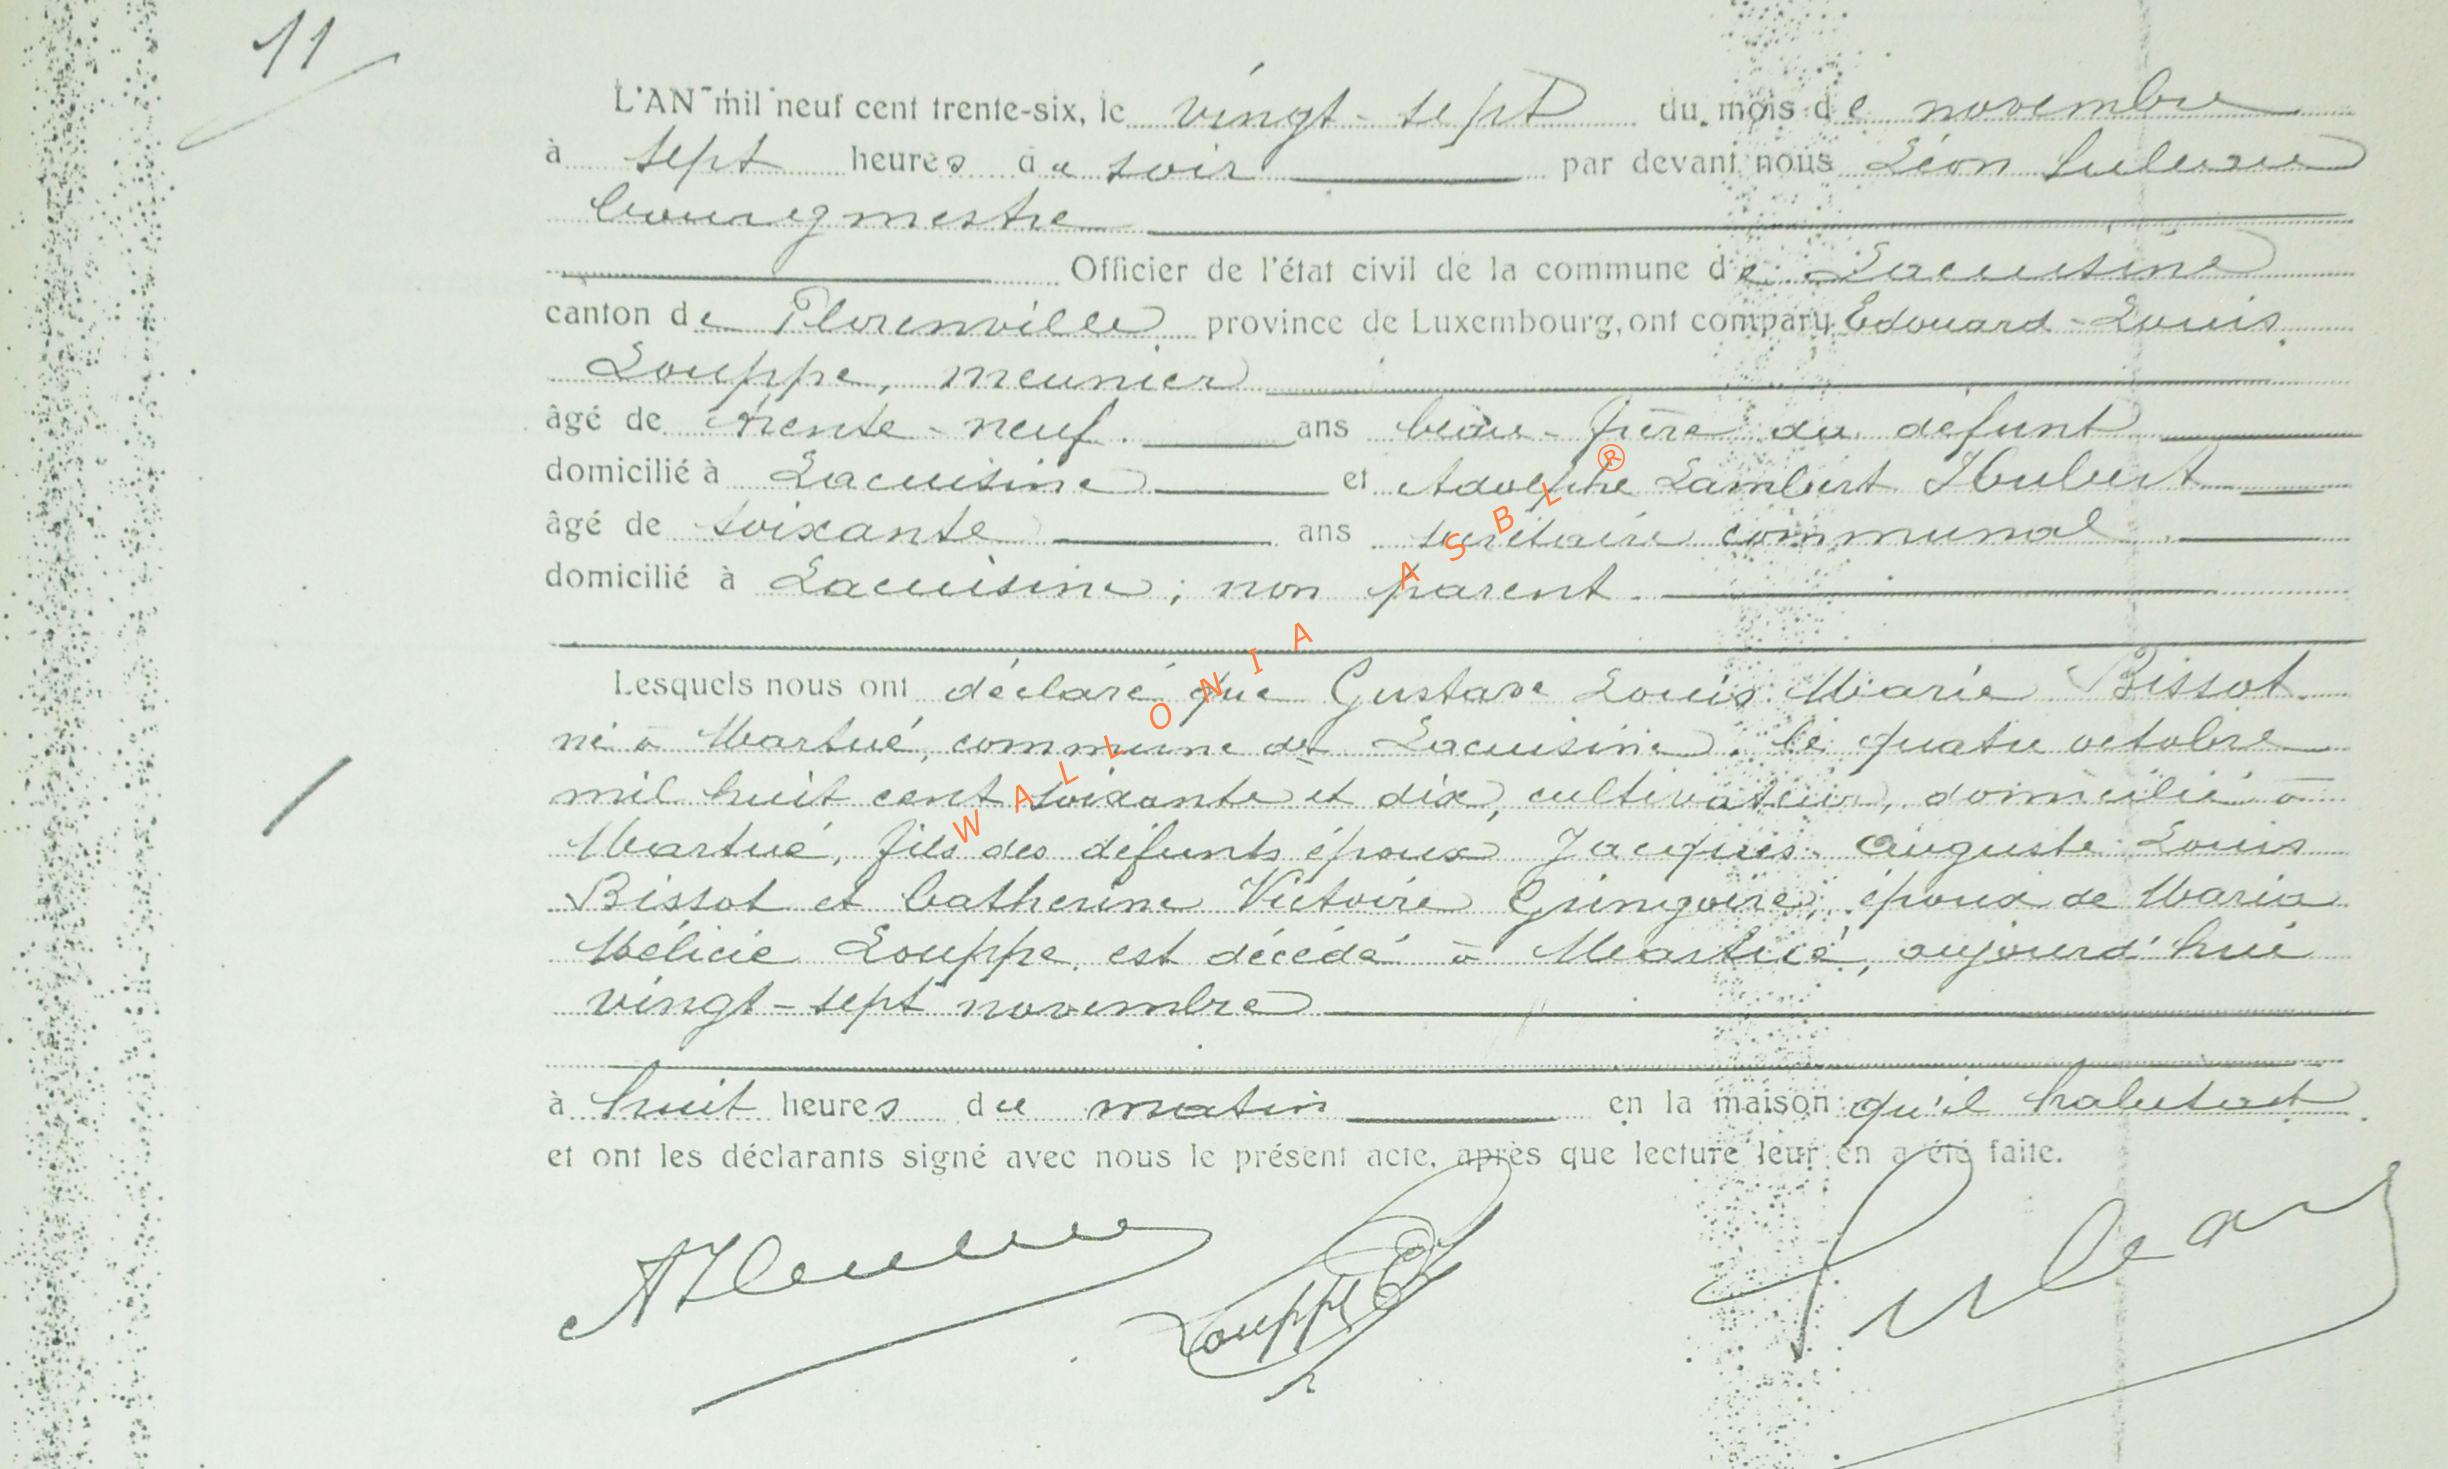 11
L'AN mil neuf cent trente-six, le vingt-sept du mois de novembre
à sept heures du soir par devant nous Léon
bourgmestre
Officier de l'état civil de la commune de Lacuisine
canton de Florenville province de Luxembourg, ont comparu Edouard-Louis
Louppe, meunier
âgé de trente-neuf ans beau-frère du défunt
domicilié à Lacuisine et Adolphe Lambert Hubert
âgé de soixante ans secrétaire communal
domicilié à Lacuisine, non parent.
Lesquels nous ont déclaré que Gustave Louis Marie Bissot
né à Martué, commune de Lacuisine, le quatre octobre
mil huit cent soixante et dix, cultivateur, domicilié à
Martué, fils des défunts époux Jacques Auguste Louis
Bissot et Catherine Victoire Gringoire, époux de Maria
Mélicie Louppe, est décédé à Martué, aujourd'hui
vingt-sept novembre
à huit heures du matin en la maison qu'il habitait
et ont les déclarants signé avec nous le présent acte, après que lecture leur en a été faite.
Louppe
WALLONIA ASBL ®